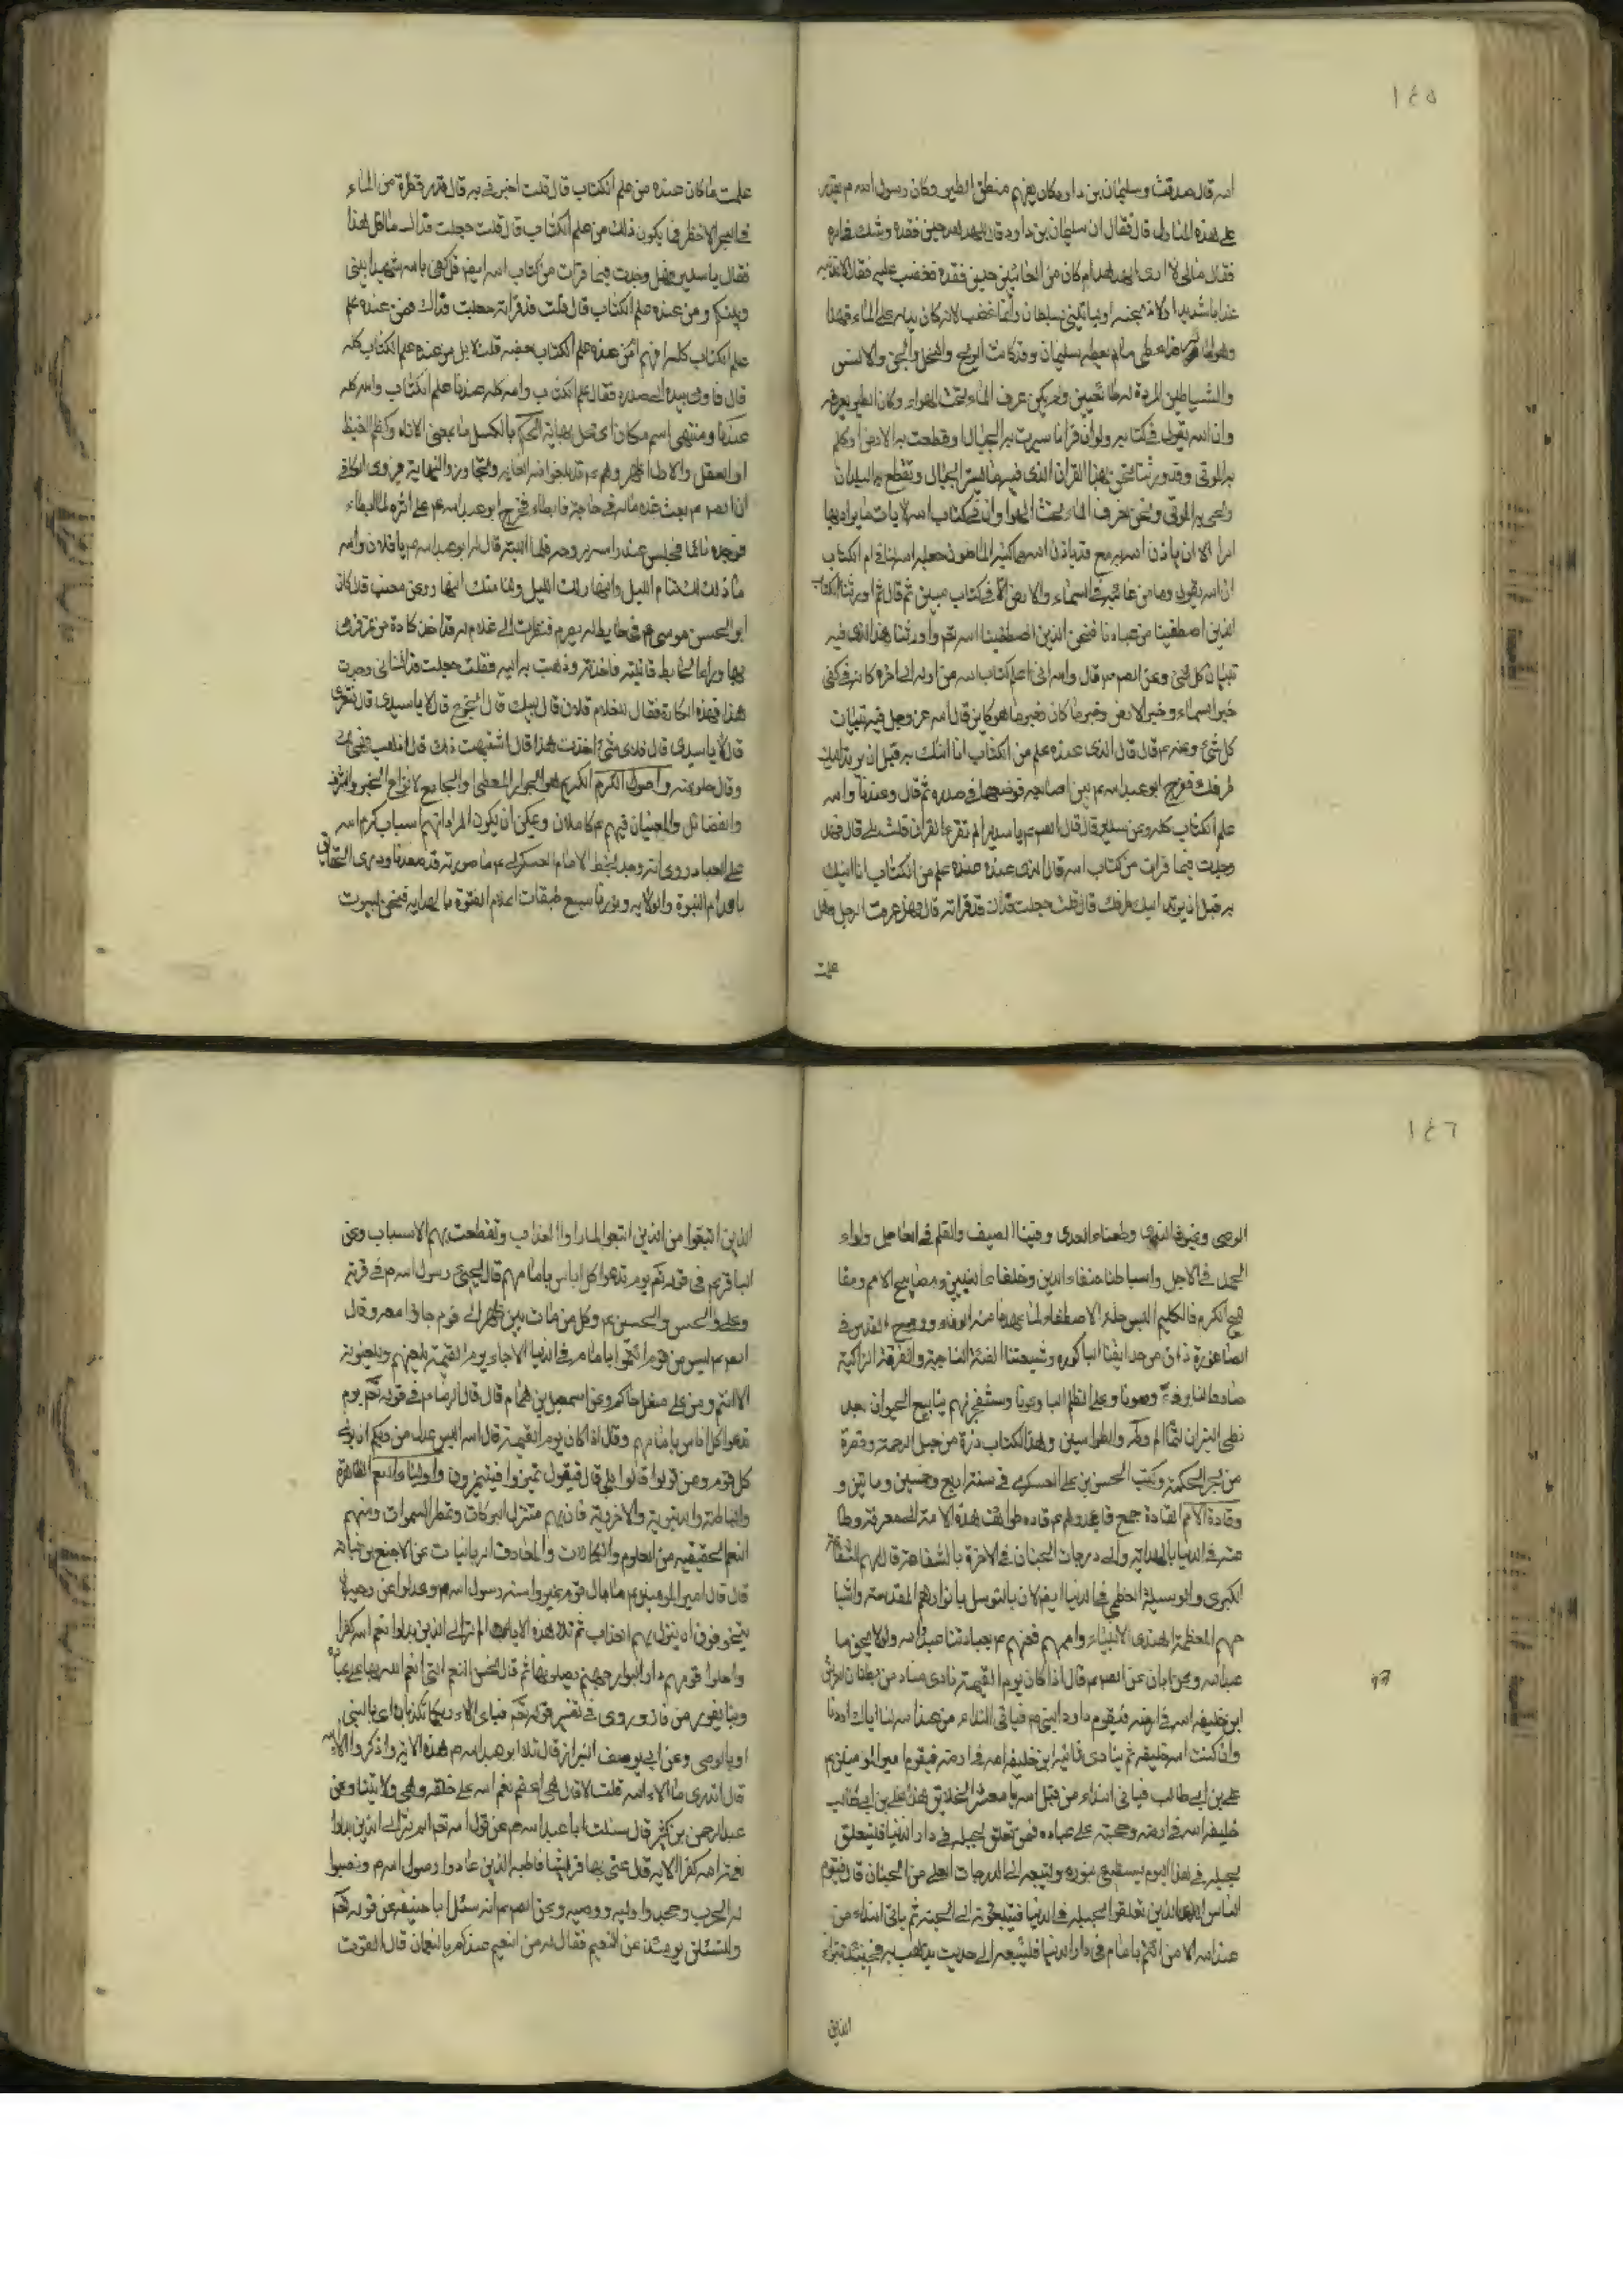 ١٤٥
اسه قال صدقت وسليمان بن داود كان يفهم منطق الطير وكان رسول اسه م يقدر
على هذه المنازل قال فقال ان سليمان بن داود قال للهدهد حين فقده وشك في امره
فقال مالى لا ارى الهدهد ام كان من الغائبين حين فقده فغضب عليه فقال لاعذبنه
عذابا شديدا ولاذبحنه او لياتينى بسلطان وانما غضب لانه كان يدله على الماء فهذا
وهو طائر قد اعطى ما لم يعطه سليمان وقد كانت الريح والنمل والجن والانس
والشياطين المردة له طائعين ولم يكن عرف الماء تحت الهواء وكان الطير يعرفه
وان اسه يقول فى كتابه ولو ان قرانا سيرت به الجبال او قطعت به الارض او كلم
به الموتى وقد ورثنا نحن هذا القران الذى فيه ما يسير الجبال وتقطع به البلدان
ويحيى به الموتى ونحن نعرف الماء تحت الهواء وان فى كتاب اسه لايات ما يراد بها
امر الا ان ياذن اسه به مع قد ياذن اسه مما كتبه الماضون جعله اسه لنا فى ام الكتاب
ان اسه يقول وما من غائبة فى السماء والارض الا فى كتاب مبين ثم قال ثم اورثنا الكتاب
الذين اصطفينا من عبادنا فنحن الذين اصطفينا اسه تعم واورثنا هذا الذى فيه
تبيان كل شئ وعن الصم م قال واسه انى اعلم كتاب اسه من اوله الى اخره كانه فى كفى
خبر السماء وخبر الارض وخبر ما كان وخبر ما هو كاين قال اسه عز وجل فيه تبيان
كل شئ وعنه م قال قال الذى عنده علم من الكتاب انا اتيك به قبل ان يرتد اليك
طرفك ففرج ابو عبد اسه م بين اصابعه فوضعها فى صدره ثم قال وعندنا واسه
علم الكتاب كله وعن سدير قال قال الصم م يا سدير الم تقرء القران قلت بلى قال فهل
وجدت فيما قرات من كتاب اسه قال الذى عنده علم من الكتاب انا اتيك
به قبل ان يرتد اليك طرفك قال قلت جعلت فداك قد قراته قال فهل عرفت الرجل وهل
علمت
علمت ما كان عنده من علم الكتاب قال قلت اخبرنى به قال قدر قطرة من الماء
فى البحر الاخضر فما يكون ذلك من علم الكتاب قال قلت جعلت فداك ما اقل هذا
فقال يا سدير فهل وجدت فيما قرات من كتاب اسه ايض قل كفى باسه شهيدا بينى
وبينكم ومن عنده علم الكتاب قال قلت قد قراته جعلت فداك فمن عنده علم
علم الكتاب كله افهم امن عنده علم الكتاب بعضه قلت لا بل من عنده علم الكتاب كله
قال فاومى بيده الى صدره فقال علم الكتاب واسه كله عندنا علم الكتاب واسه كله
عندنا ومنتهى اسم مكان اى محل نهاية الحلم بالكسر ما بمعنى الاناه وكظم الغيظ
او العقل والاول اظهر وهم م قد بلغوا فيه الغاية وتجاوزوا النهاية فروى الكافى
ان الصم م بعث غلاما له فى حاجة فابطاء فخرج ابو عبد اسه م على اثره لما ابطاء
فوجده نائما فجلس عند راسه يروحه فلما انتبه قال له ابو عبد اسه م يا فلان واسه
ما ذلك لك تنام الليل والنهار لك الليل ولنا منك النهار وعن معتب قال كان
ابو الحسن موسى م فى حايط له يصرم فنظرت الى غلام له قد اخذ كارة من تمر فرمى
بها وراء الحايط فاتيته فاخذته وذهبت به اليه فقلت جعلت فداك انى وجدت
هذا وهذه الكارة فقال للغلام فلان قال لبيك قال اتجوع قال لا يا سيدى قال فتعرى
قال لا يا سيدى قال فلاى شئ اخذت هذا قال اشتهيت ذلك قال اذهب فهى لك
وقال خلوا عنه واصول الكرم الكريم هو الجواد المعطى او الجامع لانواع الخير والشرف
والفضائل والمعنيان فيهم م كاملان ويمكن ان يكون المراد انهم اسباب كرم اسه
على العباد روى انه وجد بخط الامام العسكرى م ما صورته قد صعدنا ذرى الحقايق
باقدام النبوة والولاية ونورنا سبع طبقات اعلام الفتوة بالهداية فنحن ليوث
١٤٦
الوصى وغيوث الندى وطعناء العدى وفينا السيف والقلم فى العاجل ولواء
الحمد فى الاجل واسباطنا حلفاء الدين وخلفاء النبيين ومصابيح الامم ومفا
تيح الكرم فالكليم البس حلة الاصطفاء لما عهدنا منه الوفاء وروح القدس فى
الصاغورة ذاق من حدايقنا الباكورة وشيعتنا الفئة الناجية والفرقة الزاكية
صاروا لنا ردءا وصونا وعلى الظلمة البا وعونا وستنفجر لهم ينابيع الحيوان بعد
لظى النيران لتمام الم وطه والطواسين وهذا الكتاب ذرة من جبل الرحمة وقطرة
من بحر الحكمة وكتب الحسن بن على العسكرى فى سنة اربع وخمسين وماتين و
وقادة الامم القادة جمع قائد وهم م قاده طوائف هذه الامة الى معرفة وطا
عته فى الدنيا بالهداية والى درجات الجنان فى الاخرة بالشفاعة قال لهم الشفاعة
الكبرى والوسيلة العظمى فى الدنيا ايض لان بالتوسل بانوارهم المقدسة واشبا
حهم المعظمة اهتدى الانبياء واممهم فعنهم م بعبادتنا عبد اسه ولولا نحن ما
عبد اسه وعن ابان عن الصم م قال اذا كان يوم القيمة نادى مناد من بطنان العرش
اين خليفة اسه فى ارضه فيقوم داود النبى م فياتى النداء من عند اسه لسنا اياك اردنا
وان كنت لسه خليفة ثم ينادى ثانية اين خليفة اسه فى ارضه فيقوم امير المومنين م
على بن ابى طالب فياتى النداء من قبل اسه يا معشر الخلائق هذا على بن ابى طالب
خليفة اسه فى ارضه وحجته على عباده فمن تعلق بحبله فى دار الدنيا فليتعلق
بحبله فى هذا اليوم يستضئ بنوره وليتبعه الى الدرجات العلى من الجنان قال فيقوم
الناس الذين تعلقوا بحبله فى الدنيا فيتبعونه الى الجنة ثم ياتى النداء من
عند اسه الا من ائتم بامام فى دار الدنيا فليتبعه الى حيث يذهب به فحينئذ تبرا
الذين
الذين اتبعوا من الذين اتبعوا لما راوا العذاب وتقطعت بهم الاسباب وعن
الباقر م فى قوله تعم يوم ندعوا كل اناس بامامهم قال يجئ رسول اسه م فى قرنه
وعلى والحسن والحسين م وكل من مات بين ظهرانى قوم جاؤا معه وقال
الصم م ليس من قوم ائتموا بامامهم فى الدنيا الا جاء يوم القيمة يلعنهم ويلعنونه
الا انتم ومن على مثل حالكم وعن اسمعيل بن همام قال قال الرضا م فى قوله تعم يوم
ندعوا كل اناس بامامهم وقال اذا كان يوم القيمة قال اسه اليس عدل من ربكم ان يولى
كل قوم من تولوا قالوا بلى قال فيقول تميزوا فيتميزون واولياء النعم الظاهرة
والباطنة والدنيوية والاخروية فان بهم م تنزل البركات وتمطر السموات ومنهم
النعم الحقيقية من العلوم والكمالات والمعارف الربانيات عن الاصبغ بن نباته
قال قال امير المومنين م ما بال قوم غيروا سنة رسول اسه م وعدلوا عن وصيه لا
يتخوفون ان ينزل بهم العذاب ثم تلا هذه الاية الم تر الى الذين بدلوا نعمة اسه كفرا
واحلوا قومهم دار البوار جهنم يصلونها ثم قال نحن النعمة التى انعم اسه بها على عباده
وبنا يفوز من فاز وروى فى تفسير قوله تعم فباى الاء ربكما تكذبان اى بالنبى
او بالوصى وعن ابى يوسف البزاز قال تلا ابو عبد اسه م هذه الاية واذكروا الاء اسه
قال اتدرى ما الاء اسه قلت لا قال هى اعظم نعم اسه على خلقه وهى ولايتنا وعن
عبد الرحمن بن كثير قال سئلت ابا عبد اسه م عن قول اسه تعم الم تر الى الذين بدلوا
نعمة اسه كفرا الاية قال عنى بها قريشا قاطبة الذين عادوا رسول اسه م ونصبوا
له الحرب وجحدوا وليه ووصيه وعن الصم م انه سئل ابا حنيفة عن قوله تعم
ولتسئلن يومئذ عن النعيم فقال له من النعيم عندكم يا نعمان قال القوت